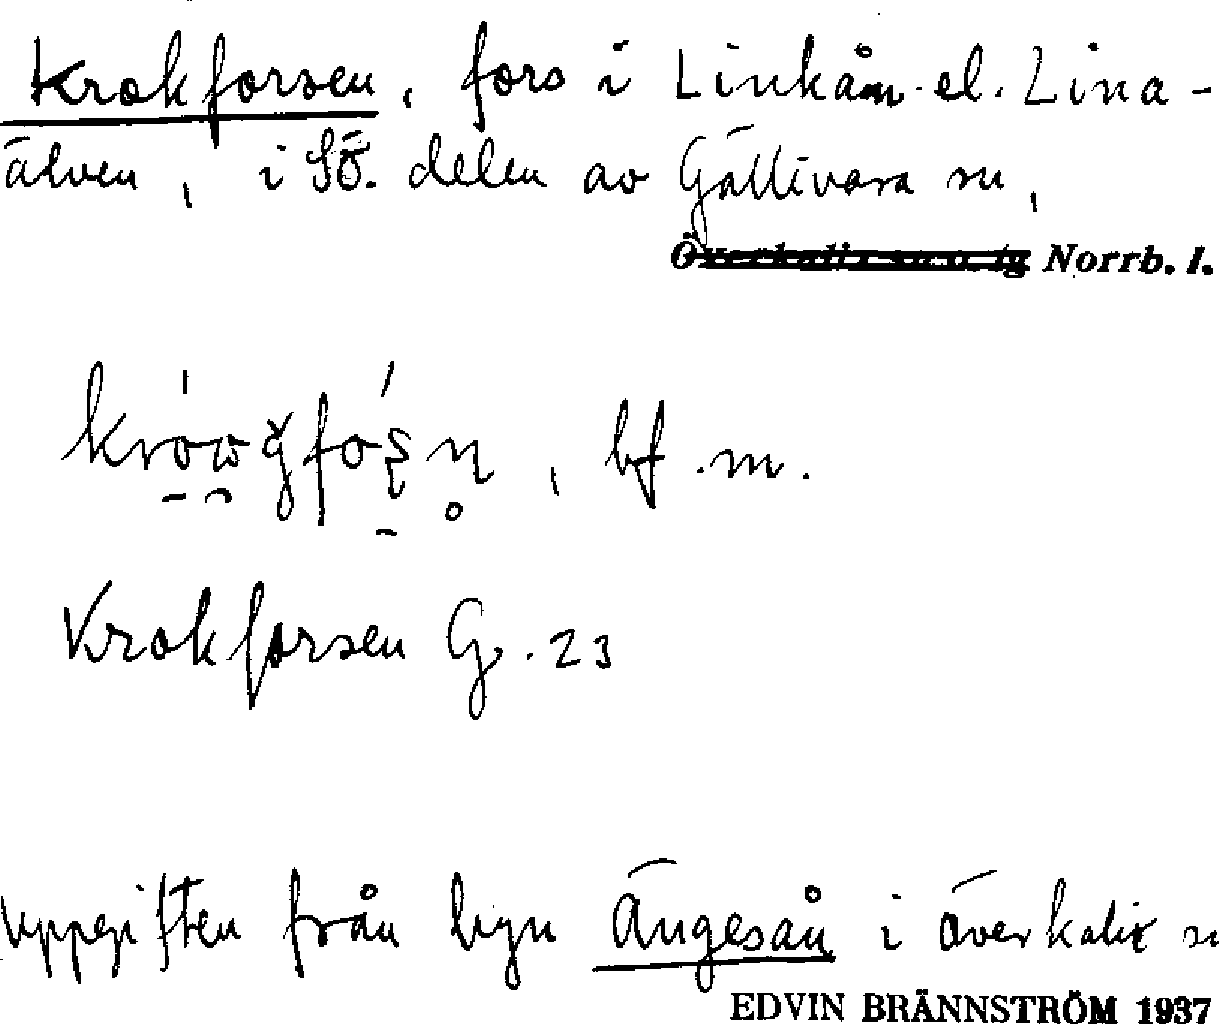 Krokforsen, fors i Linkån el. Lina-
älven, i SÖ. delen av Gällivara sn,
Överkalix sn o. tg Norrb. l.
bf. m.
Krokforsen G. 23
Uppgiften från byn Ängesån i Överkalix sn
EDVIN BRÄNNSTRÖM 1937